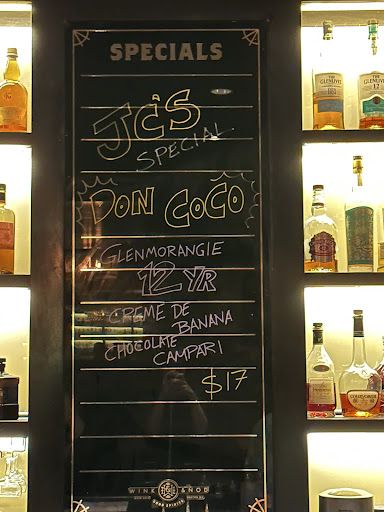 SPECIALS
JC'S
SPECIAL
DON COCO
GLENMORANGIE
12 YR
CREME DE
BANANA
CHOCOLATE
CAMPARI
$17
WINK & NOD
THE
GLENLIVET
THE
GLENLIVET
12